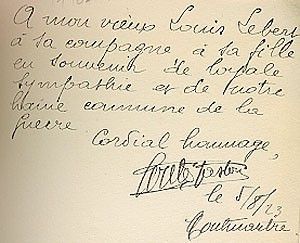 A mon vieux Louis Lebert
à sa compagne à sa fille
en souvenir de loyale
sympathie et de notre
haine commune de la
guerre
Cordial hommage,
Gaston
le 5/8/23
Montmartre